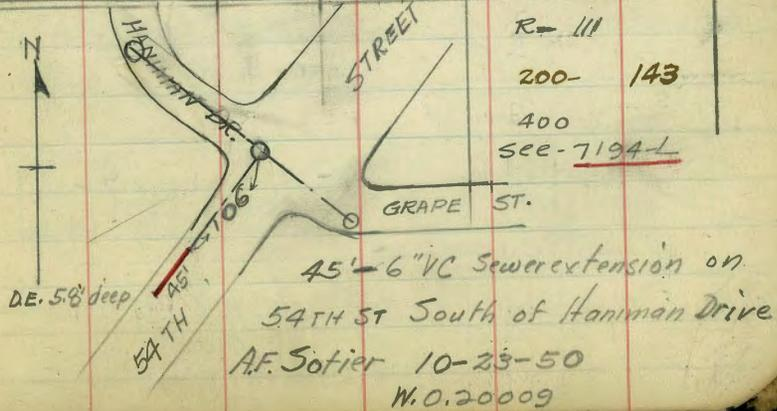 N
HANIMAN DR.
STREET
R- 111
200- 143
400
see- 7194-L
T06
GRAPE ST.
45'
D.E. 5.8' deep
54TH
45'- 6" VC Sewer extension on
54TH ST South of Haniman Drive
A.F. Sotier 10-23-50
W.O. 20009